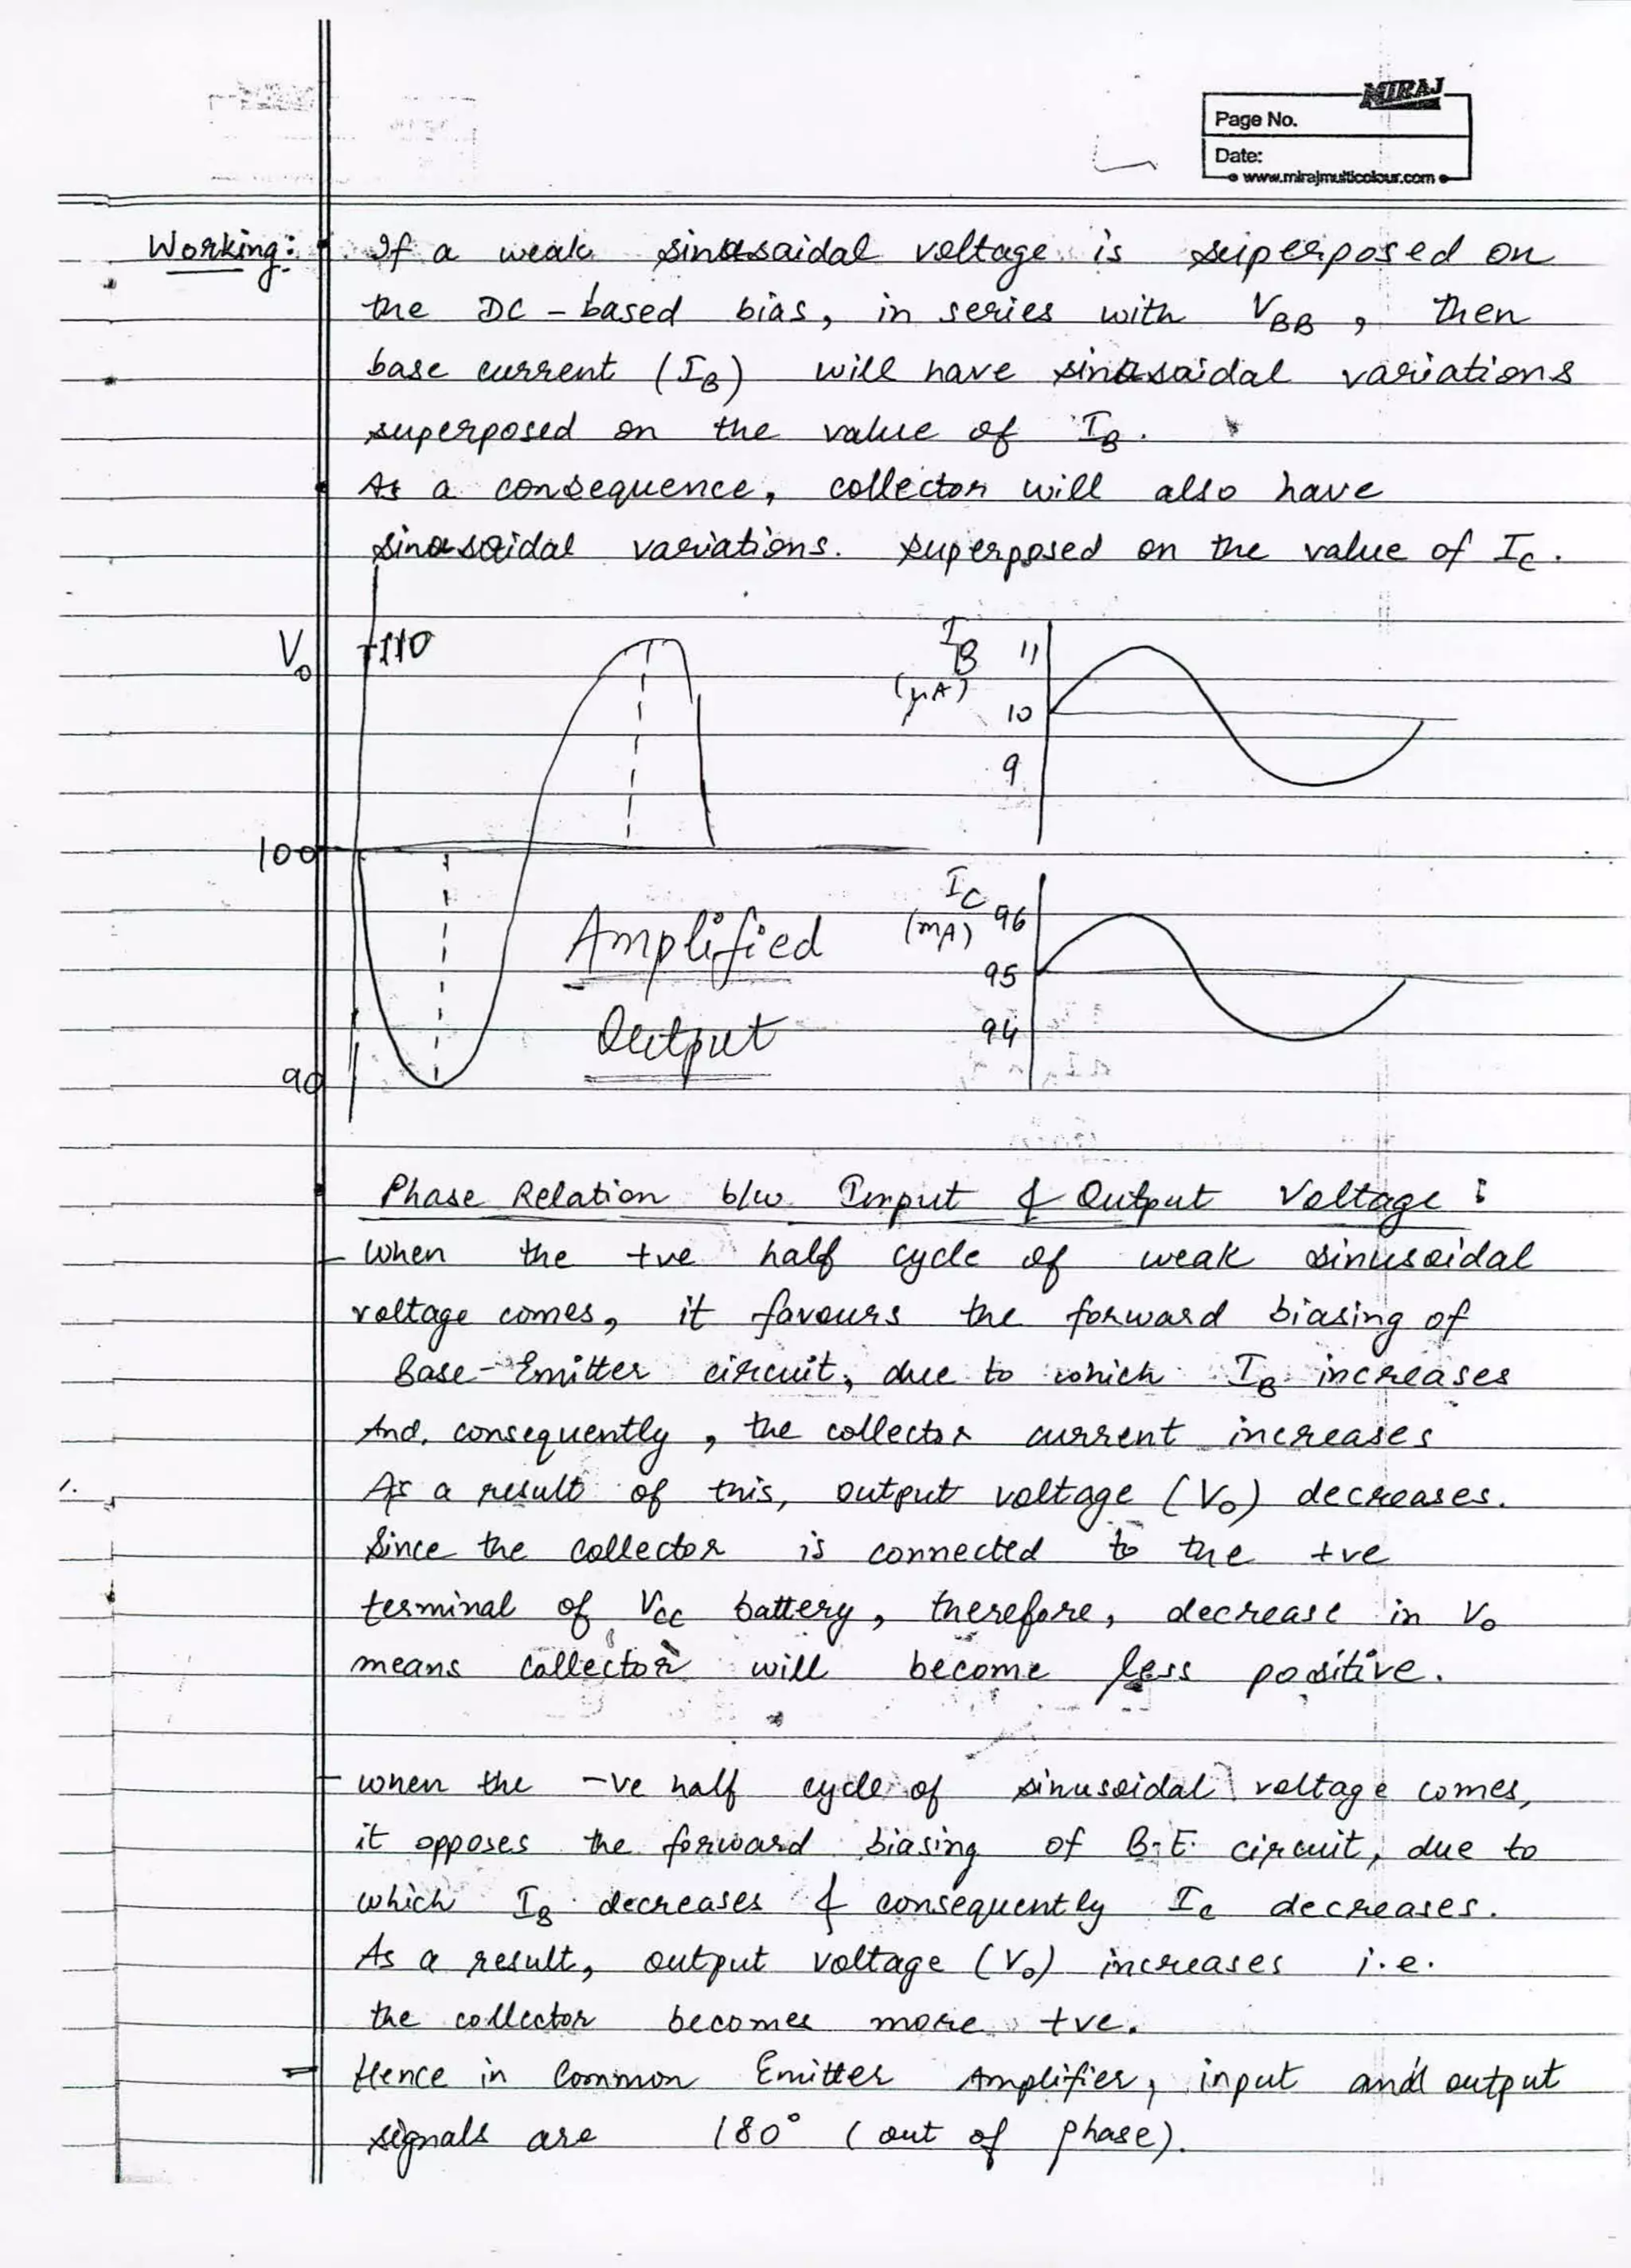 MIRAJ
Page No.
Date:
www.mirajmulticolour.com
Working: If a weak sinusaidal voltage is superposed on
the DC-based bias, in series with VBB, then
base current (IB) will have sinasaidal variations
superposed on the value of IB.
As a consequence, collector will also have
sinasoidal variations. superposed on the value of IC.
V0 110
100
90
Amplified
Output
IB 11
(μA)
10
9
IC
(mA) 96
95
94
Phase Relation b/w Input & Output Voltage:
- When the +ve half cycle of weak sinusoidal
voltage comes, it favours the forward biasing of
Base-Emitter circuit, due to which IB increases
And, consequently, the collector current increases
As a result of this, output voltage (V0) decreases.
Since the collector is connected to the +ve
terminal of VCC battery, therefore, decrease in V0
means collector will become less positive.
- when the -ve half cycle of sinusoidal voltage comes,
it opposes the forward biasing of B-E circuit, due to
which IB decreases & consequently Ic decreases.
As a result, output voltage (V0) increases i.e.
the collector becomes more +ve.
= Hence in Common Emitter Amplifier, input and output
signals are 180° (out of phase).